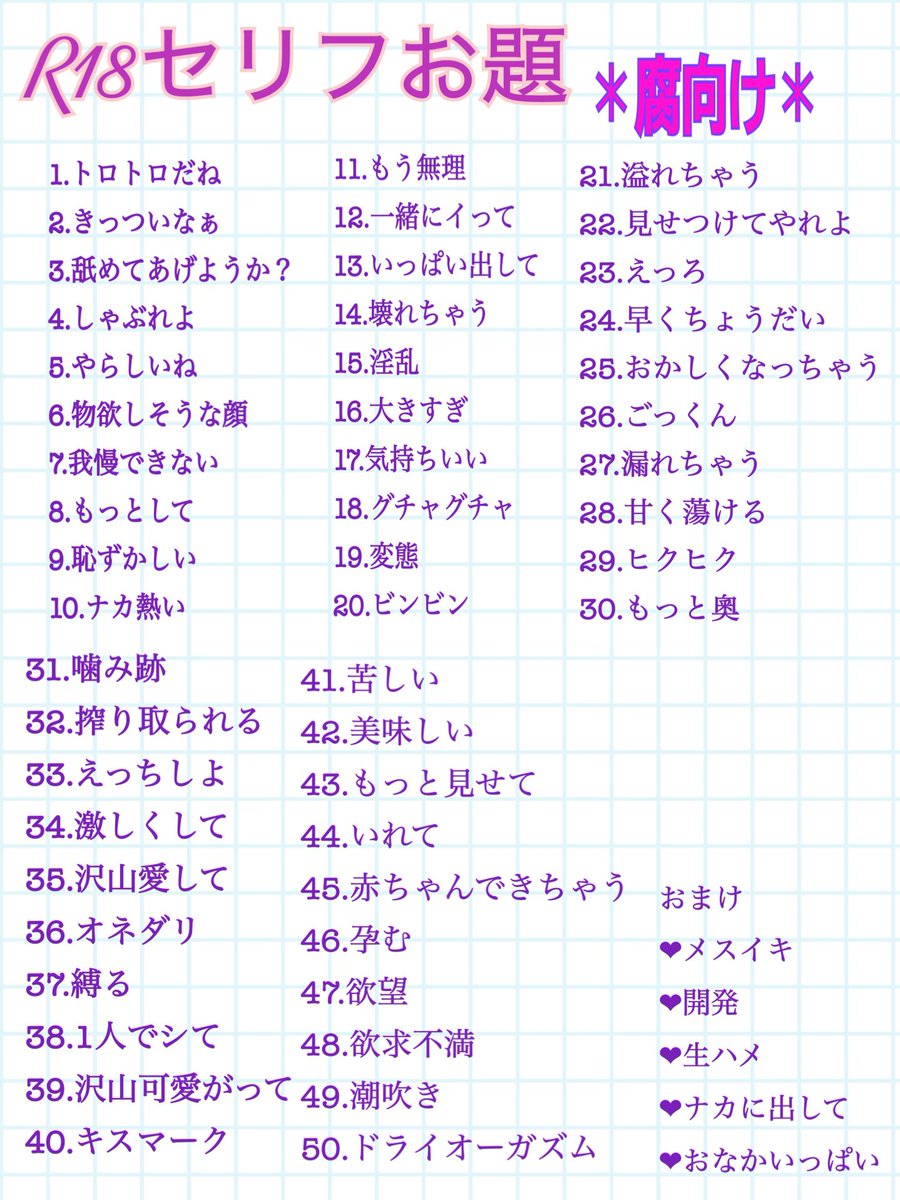 R18セリフお題
*腐向け*
1.トロトロだね
2.きっついなぁ
3.舐めてあげようか？
4.しゃぶれよ
5.やらしいね
6.物欲しそうな顔
7.我慢できない
8.もっとして
9.恥ずかしい
10.ナカ熱い
11.もう無理
12.一緒にイって
13.いっぱい出して
14.壊れちゃう
15.淫乱
16.大きすぎ
17.気持ちいい
18.グチャグチャ
19.変態
20.ビンビン
21.溢れちゃう
22.見せつけてやれよ
23.えっろ
24.早くちょうだい
25.おかしくなっちゃう
26.ごっくん
27.漏れちゃう
28.甘く蕩ける
29.ヒクヒク
30.もっと奥
31.噛み跡
32.搾り取られる
33.えっちしよ
34.激しくして
35.沢山愛して
36.オネダリ
37.縛る
38.1人でシて
39.沢山可愛がって
40.キスマーク
41.苦しい
42.美味しい
43.もっと見せて
44.いれて
45.赤ちゃんできちゃう
46.孕む
47.欲望
48.欲求不満
49.潮吹き
50.ドライオーガズム
おまけ
❤メスイキ
❤開発
❤生ハメ
❤ナカに出して
❤おなかいっぱい